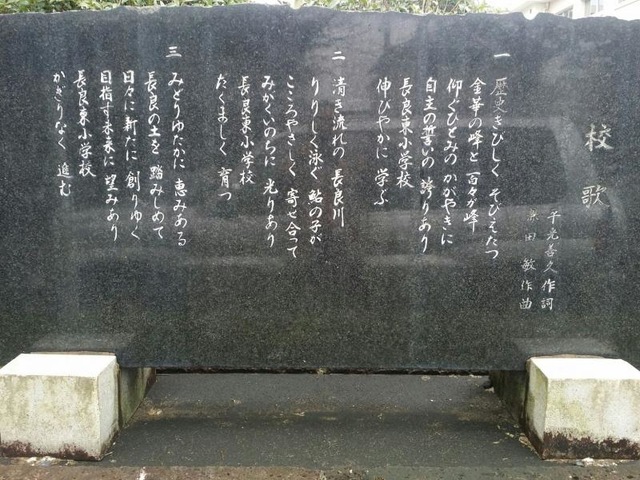 校歌
平光善久作詞
兼田 敏作曲
一
歴史きびしく そびえたつ
金華の峰と 百々が峰
仰ぐひとみの かがやきに
自主の誓いの 誇りあり
長良東小学校
伸びやかに 学ぶ
二
清き流れの 長良川
りりしく泳ぐ 鮎の子が
こころやさしく 寄せ合って
みがくいのちに 光りあり
長良東小学校
たくましく 育つ
三
みどりゆたかに 恵みある
長良の土を 踏みしめて
日々に新たに 創りゆく
目指す未来に 望みあり
長良東小学校
かぎりなく 進む